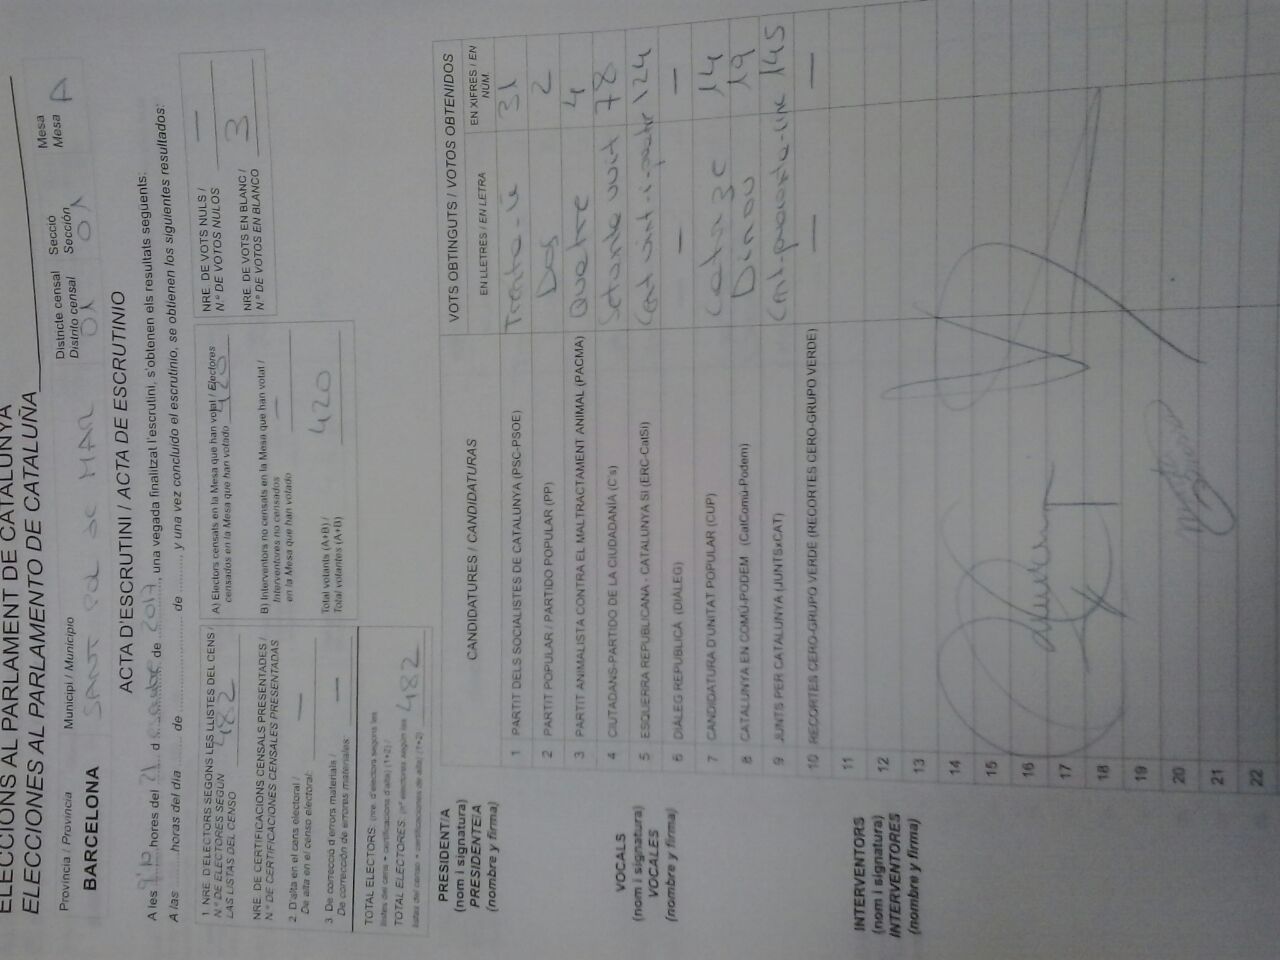 ELECCIONS AL PARLAMENT DE CATALUNYA
ELECCIONES AL PARLAMENTO DE CATALUÑA
Província / Provincia
BARCELONA
Municipi / Municipio
SANT POL DE MAR
Districte censal
Distrito censal
01
Secció
Sección
01
Mesa
Mesa
A
ACTA D'ESCRUTINI / ACTA DE ESCRUTINIO
A les 9'10 hores del 21 d de 2017, una vegada finalitzat l'escrutini, s'obtenen els resultats següents:
A las ........ horas del día ........ de ........ de ........ y una vez concluido el escrutinio, se obtienen los siguientes resultados:
1. NRE. D'ELECTORS SEGONS LES LLISTES DEL CENS /
N.º DE ELECTORES SEGÚN
LAS LISTAS DEL CENSO
482
NRE. DE CERTIFICACIONS CENSALS PRESENTADES /
N.º DE CERTIFICACIONES CENSALES PRESENTADAS
2. D'alta en el cens electoral /
De alta en el censo electoral: —
3. De correcció d'errors materials /
De corrección de errores materiales: —
TOTAL ELECTORS: (nre. d'electors segons les
llistes del cens + certificacions d'alta) (1+2) /
TOTAL ELECTORES: (nº electores según las
listas del censo + certificaciones de alta) (1+2)
482
A) Electors censats en la Mesa que han votat / Electores
censados en la Mesa que han votado 420
B) Interventors no censats en la Mesa que han votat /
Interventores no censados
en la Mesa que han votado —
Total votants (A+B) /
Total votantes (A+B)
420
NRE. DE VOTS NULS /
N.º DE VOTOS NULOS —
NRE. DE VOTS EN BLANC /
N.º DE VOTOS EN BLANCO 3
CANDIDATURES / CANDIDATURAS
VOTS OBTINGUTS / VOTOS OBTENIDOS
EN LLETRES / EN LETRA
EN XIFRES / EN NÚM.
1 PARTIT DELS SOCIALISTES DE CATALUNYA (PSC-PSOE) Trenta-u 31
2 PARTIT POPULAR / PARTIDO POPULAR (PP) Dos 2
3 PARTIT ANIMALISTA CONTRA EL MALTRACTAMENT ANIMAL (PACMA) Quatre 4
4 CIUTADANS-PARTIDO DE LA CIUDADANÍA (C's) Setanta vuit 78
5 ESQUERRA REPUBLICANA - CATALUNYA SÍ (ERC-CatSí) Cent vint-i-quatre 124
6 DIÀLEG REPUBLICÀ (DIÀLEG) — —
7 CANDIDATURA D'UNITAT POPULAR (CUP) Catorze 14
8 CATALUNYA EN COMÚ-PODEM (CatComú-Podem) Dinou 19
9 JUNTS PER CATALUNYA (JUNTSxCAT) Cent-quaranta-cinc 145
10 RECORTES CERO-GRUPO VERDE (RECORTES CERO-GRUPO VERDE) — —
11
12
13
14
15
16
17
18
19
20
21
22
PRESIDENT/A
(nom i signatura)
PRESIDENTE/A
(nombre y firma)
VOCALS
(nom i signatura)
VOCALES
(nombre y firma)
INTERVENTORS
(nom i signatura)
INTERVENTORES
(nombre y firma)